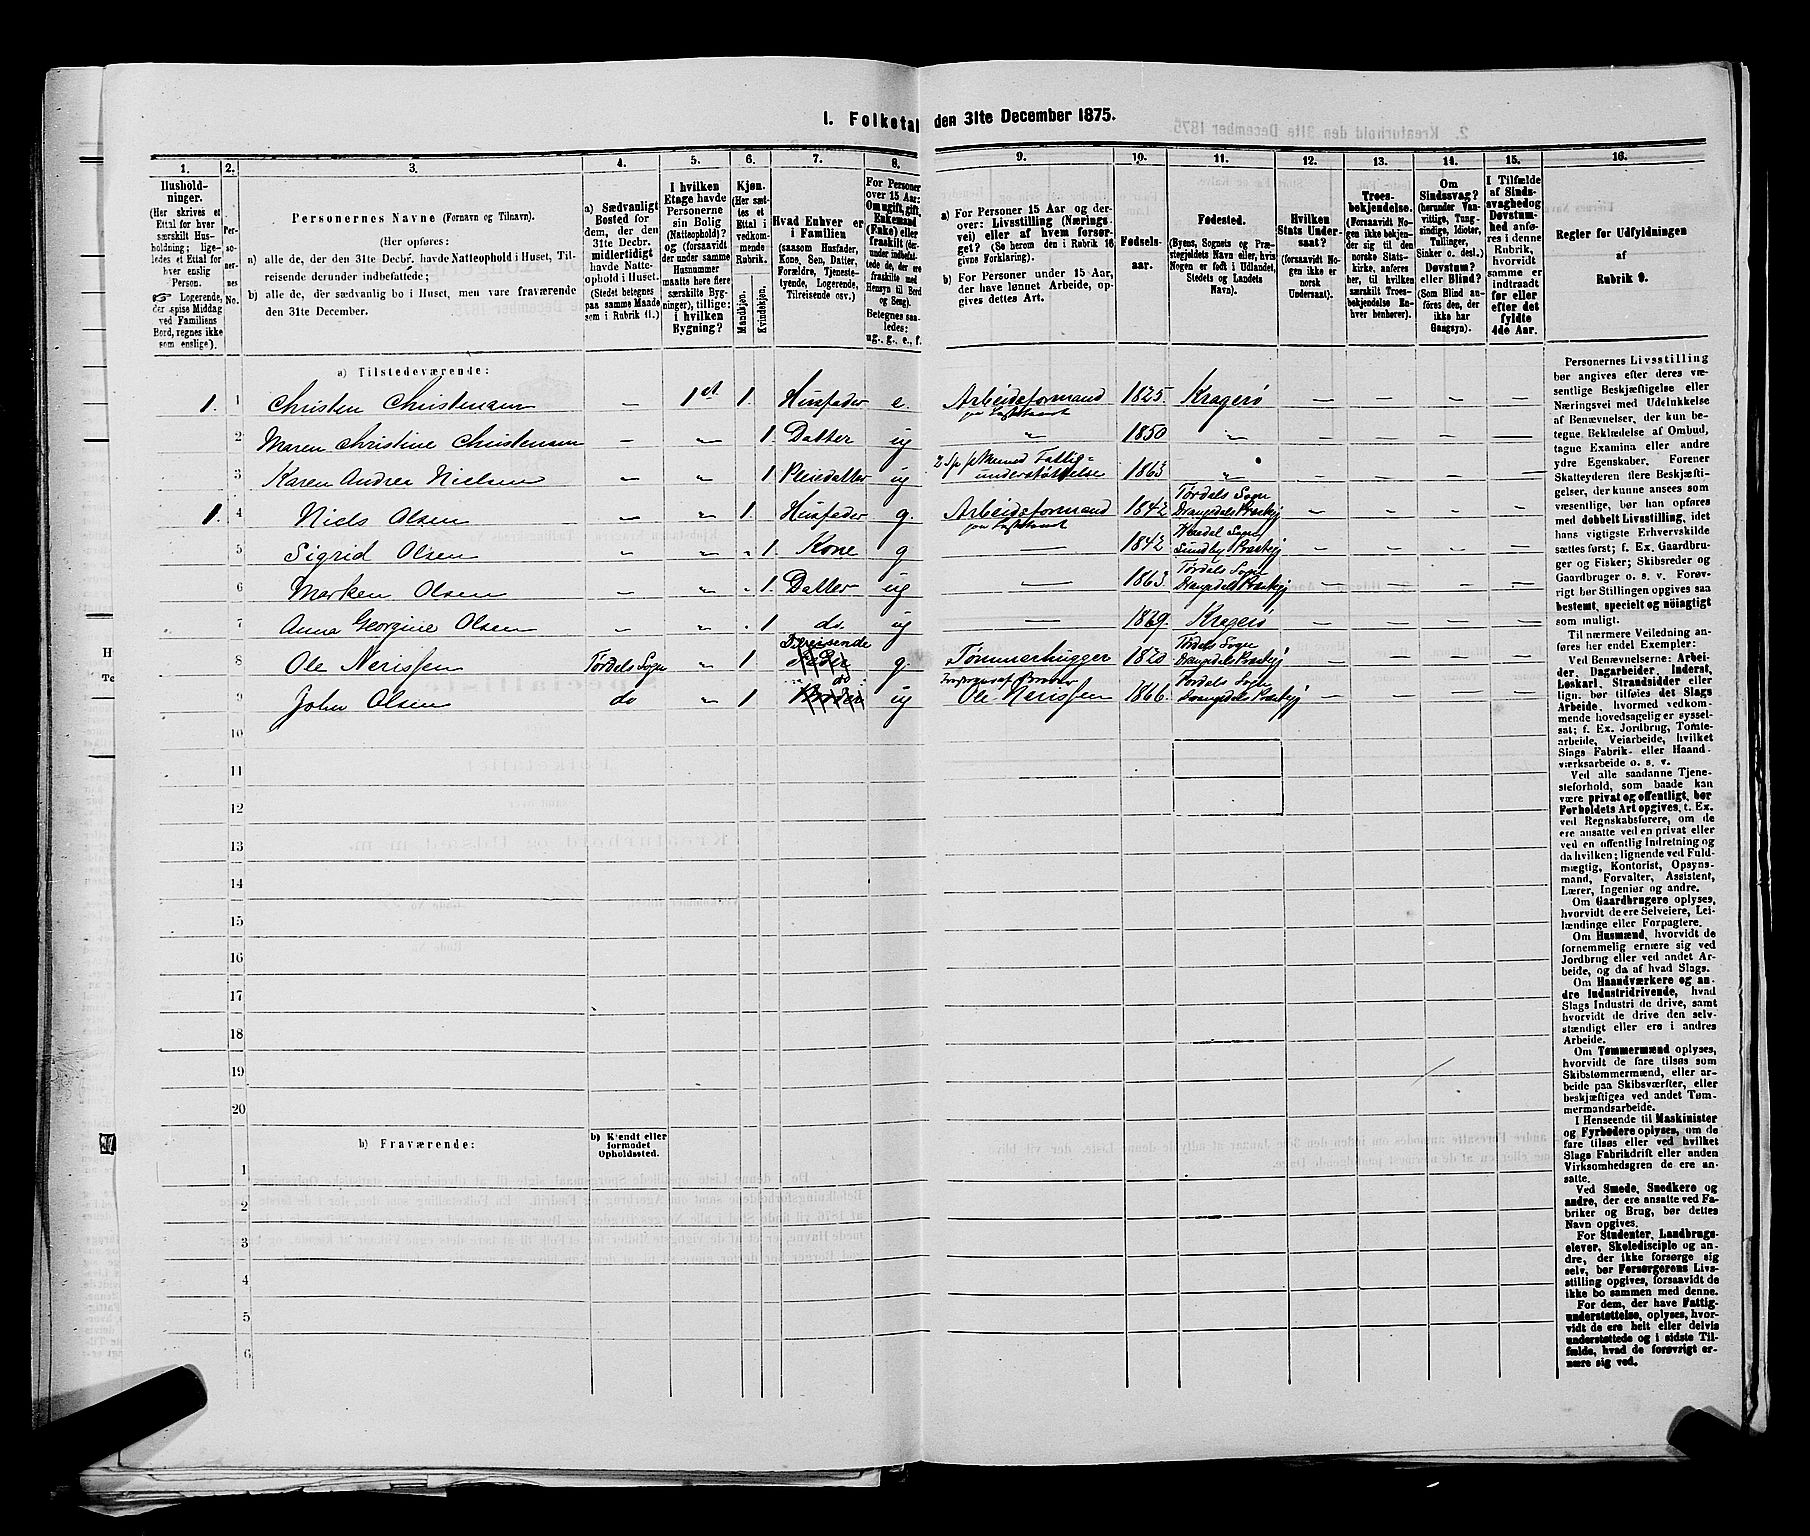 I. Folketal den 31te December 1875.
1. 2. 3. 4. 5. 6. 7. 8. 9. 10. 11. 12. 13. 14. 15. 16.
Husholdninger.
(Her skrives et
Ettal for hver
særskilt Husholdning;
ligeledes et Ettal for
hver enslig
Person.
☞ Logerende,
der spise Middag
ved Familiens
Bord, regnes ikke
som enslige).
Personernes No.
Personernes Navne (Fornavn og Tilnavn).
(Her opføres:
a) alle de, der den 31te Decbr. havde Natteophold i Huset, Tilreisende derunder indbefattede;
b) alle de, der sædvanlig bo i Huset, men vare fraværende
den 31te December.
a) Sædvanligt
Bosted for
dem, der den
31te Decbr.
midlertidigt
havde Natteophold i Huset.
(Stedet betegnes
paa samme Maade
som i Rubrik 11.)
I hvilken
Etage havde
Personerne
sin Bolig
(Natteophold)?
og (forsaavidt
der under samme
Husnummer
maatte høre flere
særskilte Bygninger), tillige:
i hvilken
Bygning?
Kjøn.
(Her sættes et
Ettal i
vedkommende
Rubrik.
Mandkjøn.
Kvindekjøn.
Hvad Enhver er
i Familien
(saasom Husfader,
Kone, Søn, Datter,
Forældre, Tjenestetyende, Logerende,
Tilreisende osv.)
For Personer
over 15 Aar:
Om ugift, gift,
Enkemand
(Enke) eller
fraskilt (derunder indbefattede de, der ere
fraskilte med
Hensyn til Bord
og Seng).
Betegnes saaledes:
ug., g., e., f.
a) For Personer 15 Aar og derover: Livsstilling (Næringsvei) eller af hvem forsørget? (Se herom den i Rubrik 16
givne Forklaring).
b) For Personer under 15 Aar,
der have lønnet Arbeide, opgives dettes Art.
Fødselsaar.
Fødested.
(Byens, Sognets og Præstegjeldets Navn eller, hvis
Nogen er født i Udlandet,
Stedets og Landets
Navn).
Hvilken
Stats Undersaat?
(forsaavidt Nogen ikke er
norsk
Undersaat).
Troesbekjendelse.
(Forsaavidt Nogen ikke bekjender sig til den
norske Statskirke, anføres
her, til hvilken
særskilt Troesbekjendelse Enhver henhører).
Om
Sindssvag?
(herunder Vanvittige, Tungsindige, Idioter,
Tullinger,
Sinker o. desl.)
Døvstum?
eller Blind?
(Som Blind anføres den, der
ikke har
Gangsyn).
I Tilfælde
af Sindssvaghed og
Døvstumhed anføres i denne
Rubrik,
hvorvidt
samme er
indtraadt
før eller
efter det
fyldte
4de Aar.
Regler for Udfyldningen
af
Rubrik 9.
a) Tilstedeværende:
1. 1 Christen Christensen — 1 st 1. Husfader e. Arbeidsformand 1825. Kragerø — — — —
2 Maren Christine Christensen — „ 1. Datter ug „ 1850 „ — — — —
3 Karen Andrea Nielsen „ „ 1 Pleiedatter ug Fattigunderstøttelse 1863 „ — — — —
1. 4 Niels Olsen — „ 1 Husfader g. Arbeidsformand 1842 Tørdals Sogn Drangedals Præstgj — — — —
5 Sigrid Olsen „ „ 1. Kone g — 1842 Præstgj — — — —
6 Marken Olsen „ „ 1. Datter ug — 1863. Tørdals Sogn Drangedals Præstgj — — — —
7 Anna Georgine Olsen — „ 1 do. ug — 1869. Kragerø — — — —
8 Ole Nerissen Tørdals Sogn „ 1 Tilreisende Fader g. Tømmerhugger 1820 Tørdals Sogn Drangedals Præstgj — — — —
9 John Olsen do „ 1 do Broder ug Ole Nerissen 1866. Tørdals Sogn Drangedals Præstgj — — — —
10
11
12
13
14
15
16
17
18
19
20
b) Fraværende:
b) Kjendt eller
formodet
Opholdssted.
1
2
3
4
5
6
Personernes Livsstilling
bør angives efter deres væsentlige Beskjæftigelse eller
Næringsvei med Udelukkelse
af Benævnelser, der kun betegne Beklædelse af Ombud,
tagne Examina eller andre
ydre Egenskaber. Forener
Skatteyderen flere Beskjæftigelser, der kunne ansees som
væsentlige, bør han opføres
med dobbelt Livsstilling, idet
hans vigtigste Erhvervskilde
sættes først; f. Ex. Gaardbruger og Fisker; Skibsreder og
Gaardbruger o. s. v. Forøvrigt bør Stillingen opgives saa
bestemt, specielt og nöiagtigt
som muligt.
Til nærmere Veiledning anføres her endel Exempler:
Ved Benævnelserne: Arbeider, Dagarbeider, Inderst,
Løskarl, Strandsidder eller
lign. bør tilføies det Slags
Arbeide, hvormed vedkommende hovedsagelig er sysselsat; f. Ex. Jordbrug, Tomtearbeide, Veiarbeide, hvilket
Slags Fabrik- eller Haandværksarbeide o. s. v.
Ved alle saadanne Tjenesteforhold, som baade kan
være privat og offentligt, bør
Forholdets Art opgives, t. Ex.
ved Regnskabsførere, om de
ere ansatte ved en privat eller
ved en offentlig Indretning og
da hvilken; lignende ved Fuldmægtig, Kontorist, Opsynsmand, Forvalter, Assistent,
Lærer, Ingeniør og andre.
Om Gaardbrugere oplyses,
hvorvidt de ere Selveiere, Leilændinge eller Forpagtere.
Om Husmænd, hvorvidt de
fornemmelig ernære sig ved
Jordbrug eller ved andet Arbeide, og da af hvad Slags.
Om Haandværkere og andre Industridrivende, hvad
Slags Industri de drive, samt
hvorvidt de drive den selvstændigt eller ere i andres
Arbeide.
Om Tømmermænd oplyses,
hvorvidt de fare tilsøs som
Skibstømmermænd, eller arbeide paa Skibsværfter, eller
beskjæftiges ved andet Tømmermandsarbeide.
I Henseende til Maskinister
og Fyrbødere oplyses, om de
fare tilsøs eller ved hvilket
Slags Fabrikdrift eller anden
Virksomhedsgren de ere ansatte.
Ved Smede, Snedkere og
andre, der ere ansatte ved Fabriker og Brug, bør dettes
Navn opgives.
For Studenter, Landbrugselever, Skoledisciple og andre, der ikke forsørge sig
selv, bør Forsørgerens Livsstilling opgives, forsaavidt de
ikke bo sammen med denne.
For dem, der have Fattigunderstøttelse, oplyses, hvorvidt de ere helt eller delvis
understøttede og i sidste Tilfælde, hvad de forøvrigt ernære sig ved.